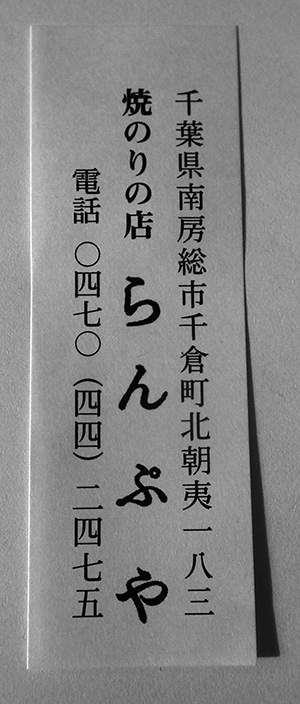 千葉県南房総市千倉町北朝夷一八三
焼のりの店 らんぷや
電話 〇四七〇(四四)二四七五